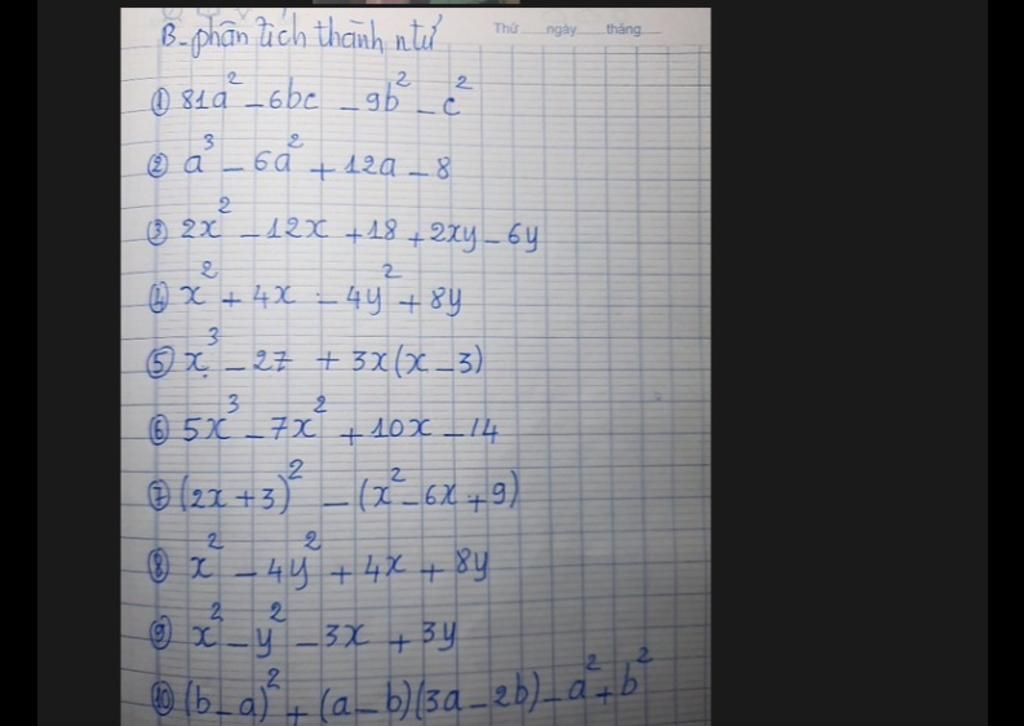 B - phân tích thành ntử
Thứ ngày tháng
① 81a² - 6bc - 9b² - c²
② a³ - 6a² + 12a - 8
③ 2x² - 12x + 18 + 2xy - 6y
④ x² + 4x - 4y² + 8y
⑤ x³ - 27 + 3x(x - 3)
⑥ 5x³ - 7x² + 10x - 14
⑦ (2x + 3)² - (x² - 6x + 9)
⑧ x² - 4y² + 4x + 8y
⑨ x² - y² - 3x + 3y
⑩ (b - a)² + (a - b)(3a - 2b) - a² + b²